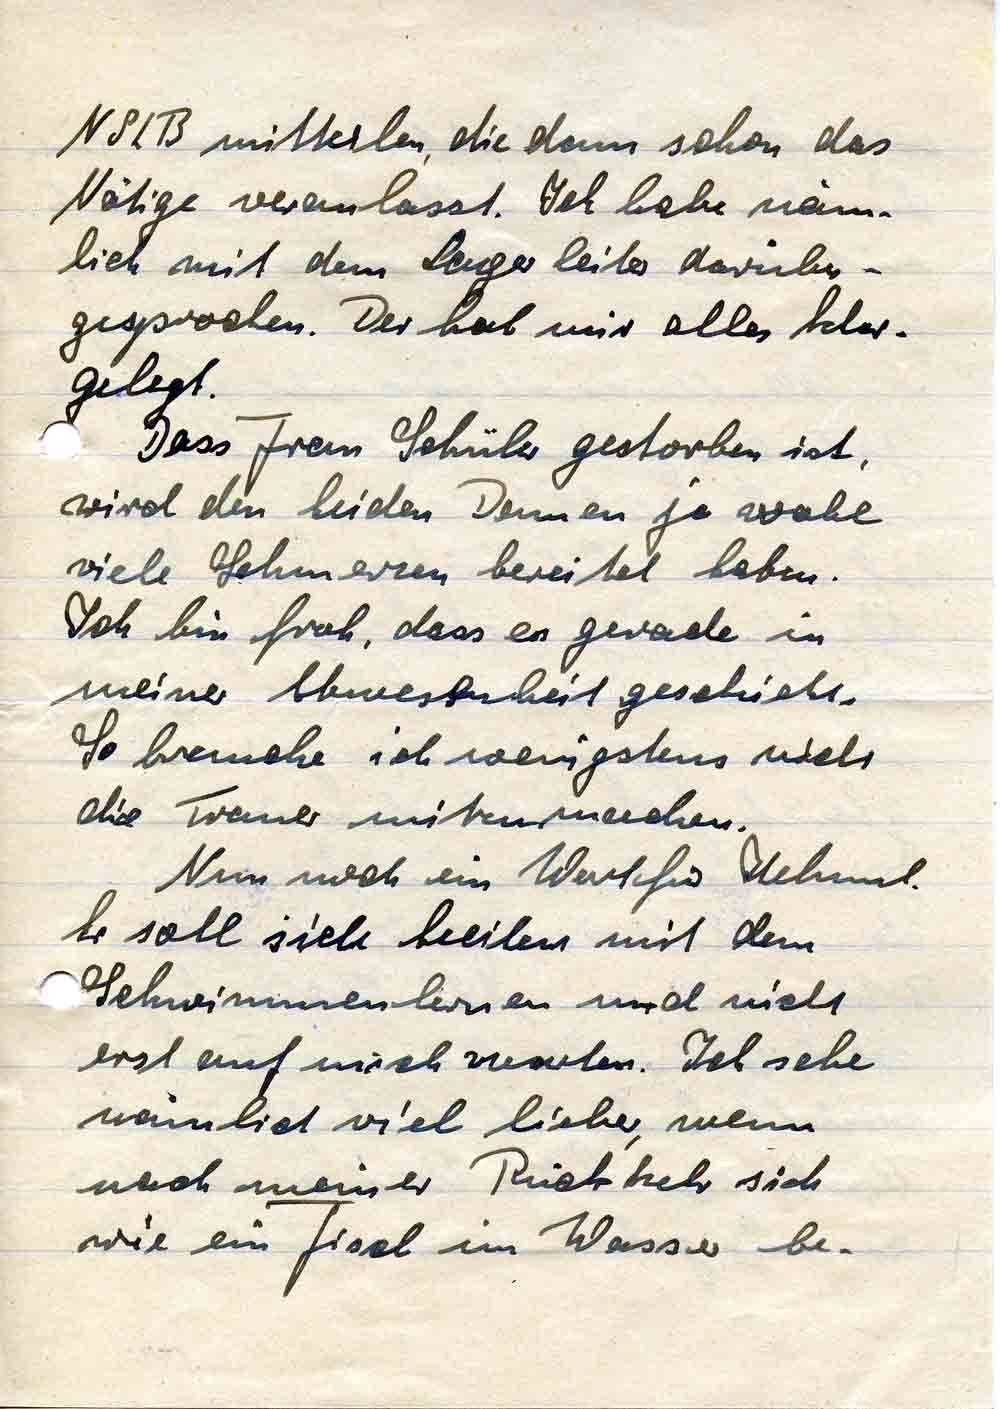 NSLB mitteilen, die dann schon das
Nötige veranlasst. Ich habe näm-
lich mit dem Lagerleiter darüber-
gesprochen. Der hat mir alles klar-
gelegt.
Dass Frau Schüler gestorben ist,
wird den beiden Damen ja wohl
viele Schmerzen bereitet haben.
Ich bin froh, dass es gerade in
meiner Abwesenheit geschieht.
So brauche ich wenigstens nicht
die Trauer mitzumachen.
Nun noch ein Wort für Helmut.
Er soll sich beeilen mit dem
Schwimmenlernen und nicht
erst auf mich warten. Ich sehe
nämlich viel lieber, wenn
nach meiner Rückkehr sich
wie ein Fisch im Wasser be-